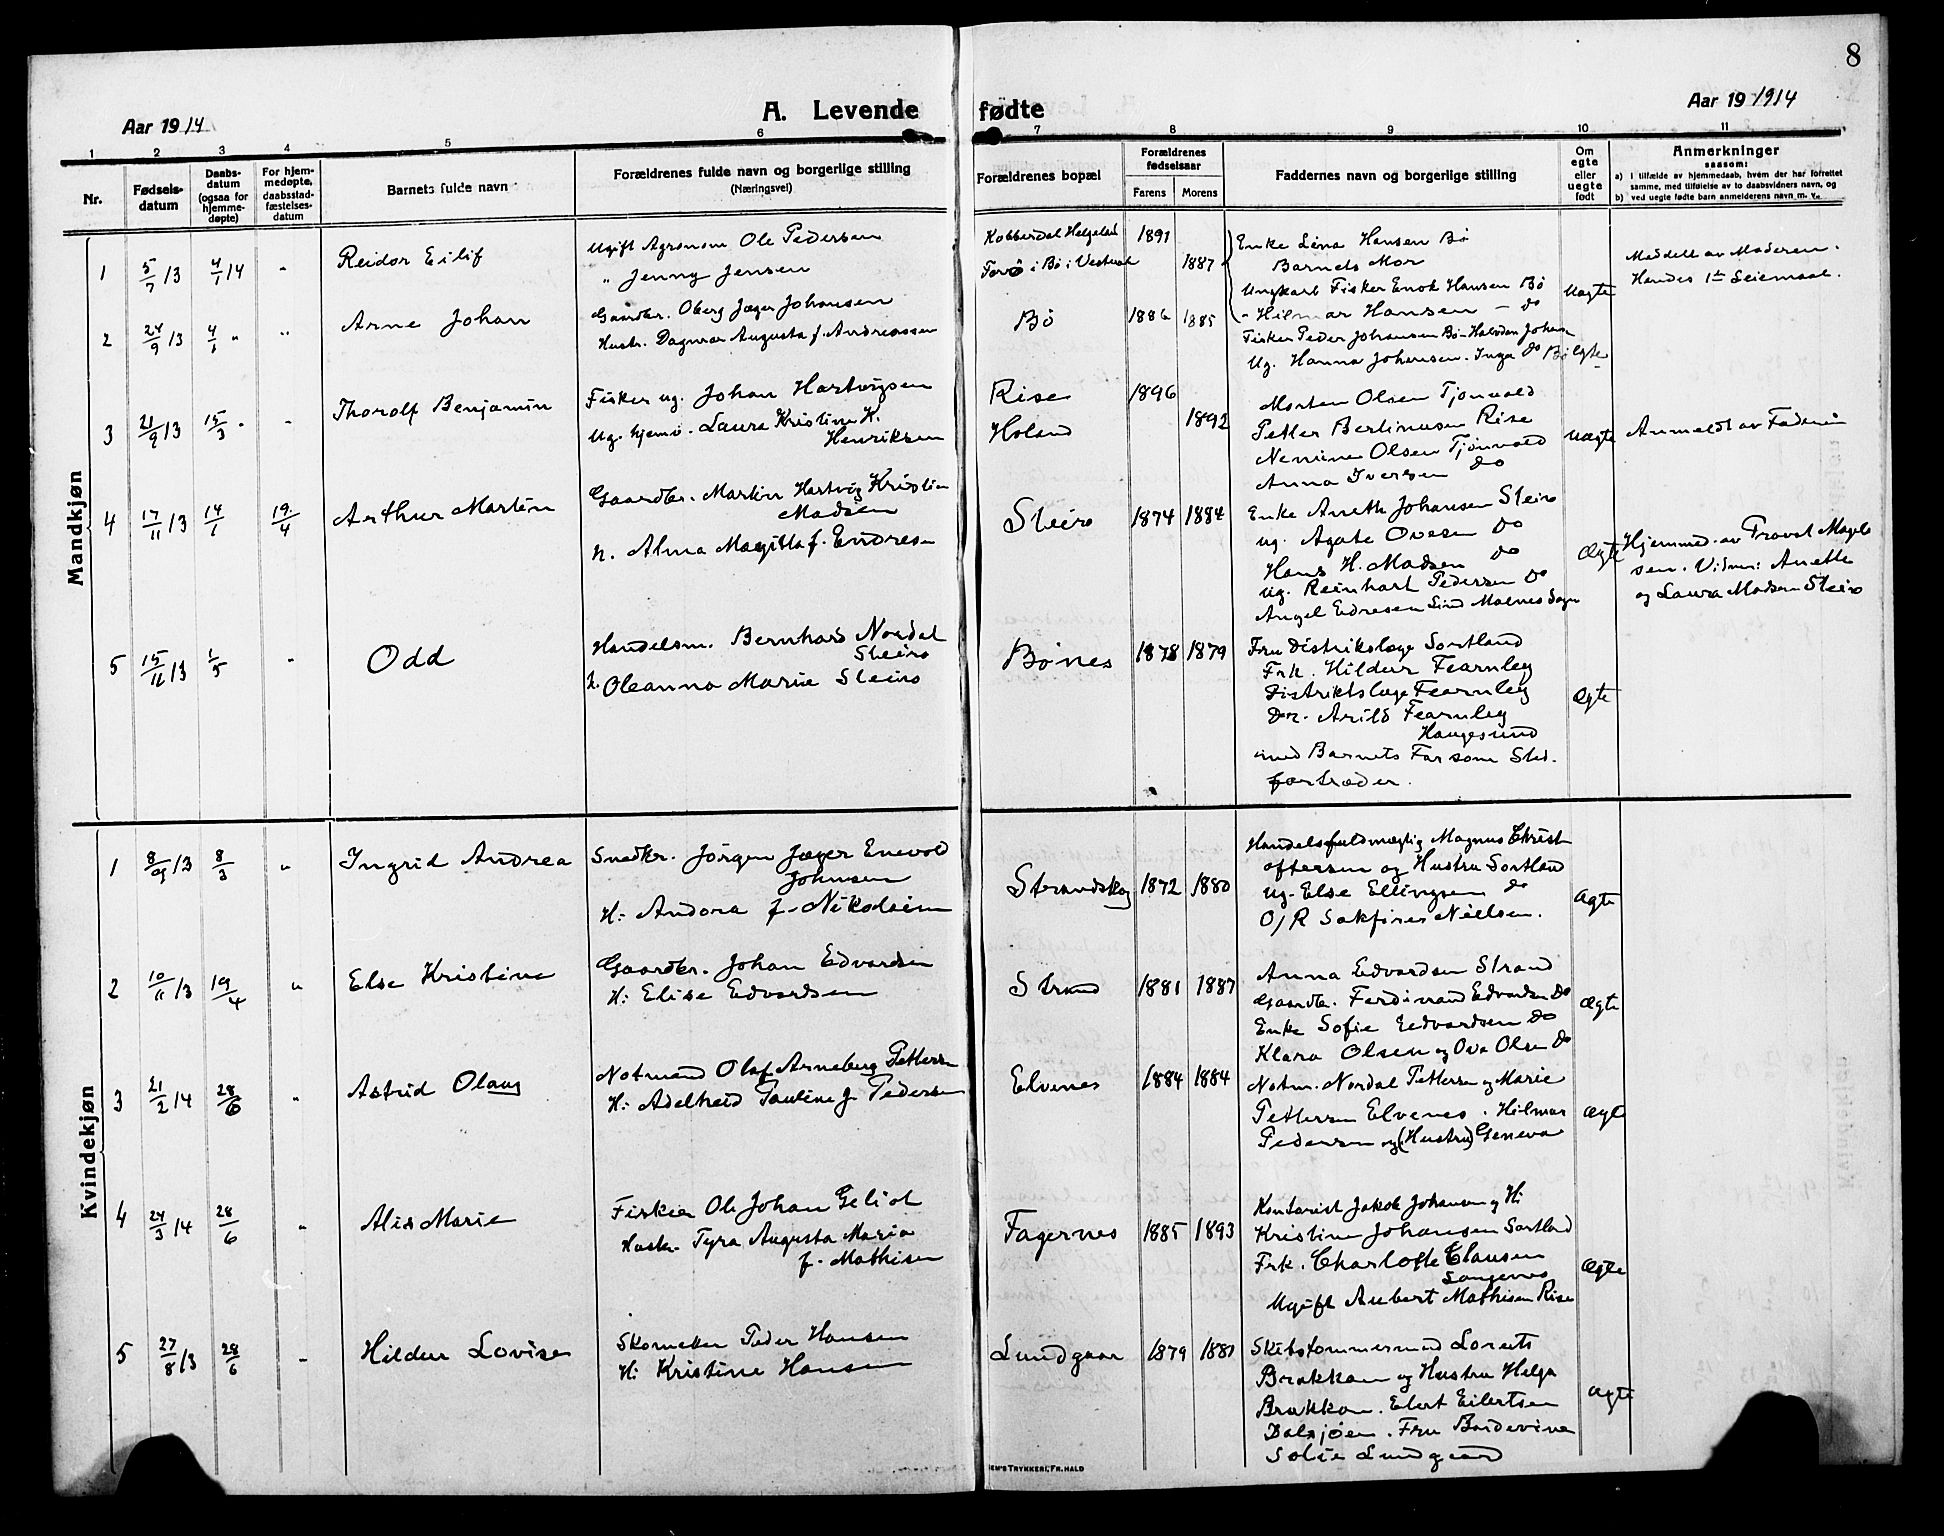 8
Aar 1914
A. Levende fødte
Aar 19 1914
1 2 3 4 5 6 7 8 9 10 11
Nr.
Fødsels-
datum
Daabs-
datum
(ogsaa for
hjemme-
døpte)
For hjem-
medøpte,
daabsstad-
fæstelses-
datum
Barnets fulde navn
Forældrenes fulde navn og borgerlige stilling
(Næringsvei)
Forældrenes bopæl
Forældrenes
fødselsaar
Farens Morens
Faddernes navn og borgerlige stilling
Om
egte
eller
uegte
født
Anmerkninger
saasom:
a) i tilfælde av hjemmedaab, hvem der har forrettet
samme, med tilføielse av to daabsvidners navn, og
b) ved uegte fødte barn anmelderens navn m. v.
Mandkjøn
1 5/7 13 4/1 14 " Reidor Eilif
Ugift Agronom Ole Pedersen
" Jenny Jensen
Kobberdal Helgeland 1891
i Bø i Vesteraal 1887
Enke Lina Hansen Bø
Barnets Mor
Ungkarl Fisker Enok Hansen Bø
- Hilmar Hansen - do
Uægte
Meddelt av Moderen.
Hendes 1ste Leiemaal.
2 24/9 13 4/1 " " Arne Johan
Gaardbr. Oberg Jæger Johansen
Hustr. Dagmar Augusta f. Andreassen
Bø 1886 1885
Fisker Peder Johansen Bø - Halvdan Johan
Ug. Hanna Johansen. Inga do Bø
Egte
3 21/9 13 15/3 " " Thorolf Benjamin
Fisker ug. Johan Hartvigsen
Ug. hjemv. Laura Kristine K.
Henriksen
Rise 1896
Holand 1892
Morten Olsen Tjønvold
Petter Berlinusen Rise
Olsen Tjønvold
Anna Iversen do
Uægte
Anmeldt av Faderen
4 17/11 13 14/1 19/4 Arthur Martin
Gaardbr. Martin Hartvig Kristian
Madsen
H. Alma f. Endresen
Steiro 1874 1884
Enke Aneth Johansen Steiro
ug. Agate Ovesen do
Hans H. Madsen do
ug. Reinhart Pedersen do
Angel Edresen Malnes Sogn
Ægte
Hjemmed. av Provst Magel
sen. Vidner: Anette
og Laura Madsen Steiro
5 15/11 13 1/5 " Odd
Handelsm. Bernhard Nordal
Steiro
H. Oleanna Marie Steiro
Bønes 1878 1879
Fru Distriktslæge Sortland
Frk. Hildur Fearnley
Distriktslæge Fearnley
Dr. Arild Fearnley
Haugesund
med Barnets Far som Sted.
fortræder.
Ægte
Kvindekjøn
1 8/9 13 8/3 " Ingrid Andrea
Snedkr. Jörgen Jæger Enevold
Johnsen
H: Andora f. Nikolaisen
Strandskog 1872 1880
Handelsfuldmægtig Magnus Christ
offersen og Hustru Sortland
ug. Else Ellingsen do
O/R Sakfører Nielsen.
Ægte
2 10/11 13 19/4 " Else Kristine
Gaardbr. Johan Edvardsen
H: Elise Edvardsen
Strand 1881 1887
Anna Edvardsen Strand
Gaardbr. Ferdinand Edvardsen do
Enke Sofie Eedvardsen do
Klara Olsen og Ove Olsen do
Ægte
3 21/2 14 28/6 " Astrid Olaug
Notmand Olaf Arneberg Pettersen
H: Adelheid Pauline f. Pedersen
Elvenes 1884 1884
Notm. Nordal Pettersen og Marie
Pettersen Elvenes. Hilmar
Pedersen og (Hustru) Geneva
Ægte
4 24/3 14 28/6 " Alis Marie
Fisker Ole Johan Geliot
Hustr. Tyra Augusta Maria
f. Mathisen
Fagernes 1885 1893
Kontorist Jakob Johansen og H:
Kristine Johansen Sortland
Frk. Charlotte Clausen
Ugift Aubert Mathisen Rise
Ægte
5 27/8 13 28/6 " Hildur Lovise
Skomaker Peder Hansen
H: Kristine Hansen
Lundgaar 1879 1881
Skibstømmermand Lorents
Brakkan og Hustru Helga
Brakkan. Elert Eilertsen
Dalsjøen. Fru Boldevine
Solie Lundgaard
Ægte
EM'S TRYKKERI, FR. HALD